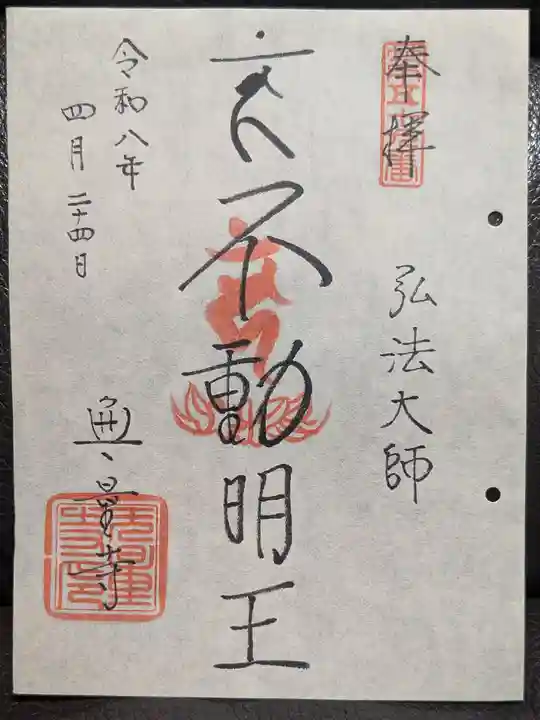 奉拝
弘法大師
不動明王
令和八年
四月二十四日
量寺